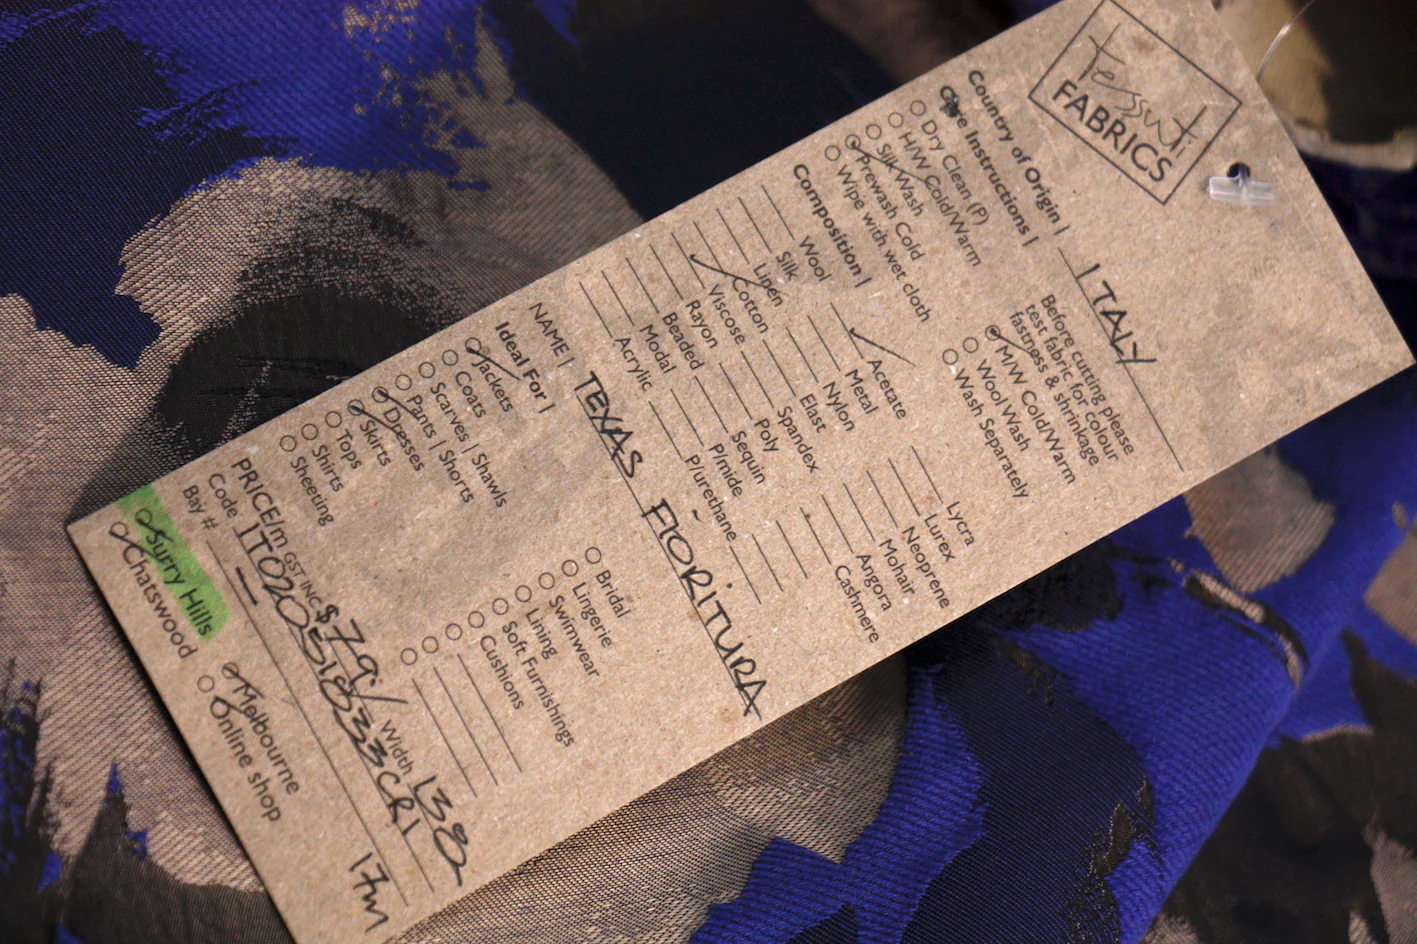 Tessuti
FABRICS
Country of Origin | ITALY
Care Instructions |
Dry Clean (P)
H/W Cold/Warm
Silk Wash
Prewash Cold
Wipe with wet cloth
Before cutting please
test fabric for colour
fastness & shrinkage
M/W Cold/Warm
Wool Wash
Wash Separately
Composition |
Wool
Silk
Linen
Cotton
Viscose
Rayon
Beaded
Modal
Acrylic
Acetate
Metal
Nylon
Elast
Spandex
Poly
Sequin
P/mide
P/urethane
Lycra
Lurex
Neoprene
Mohair
Angora
Cashmere
NAME | TEXAS FIORITURA
Ideal For |
Jackets
Coats
Scarves | Shawls
Pants | Shorts
Dresses
Skirts
Tops
Shirts
Sheeting
Bridal
Lingerie
Swimwear
Lining
Soft Furnishings
Cushions
PRICE/m GST INC $79/ Width 138
Code
Bay #
17m
Surry Hills
Chatswood
Melbourne
Online shop